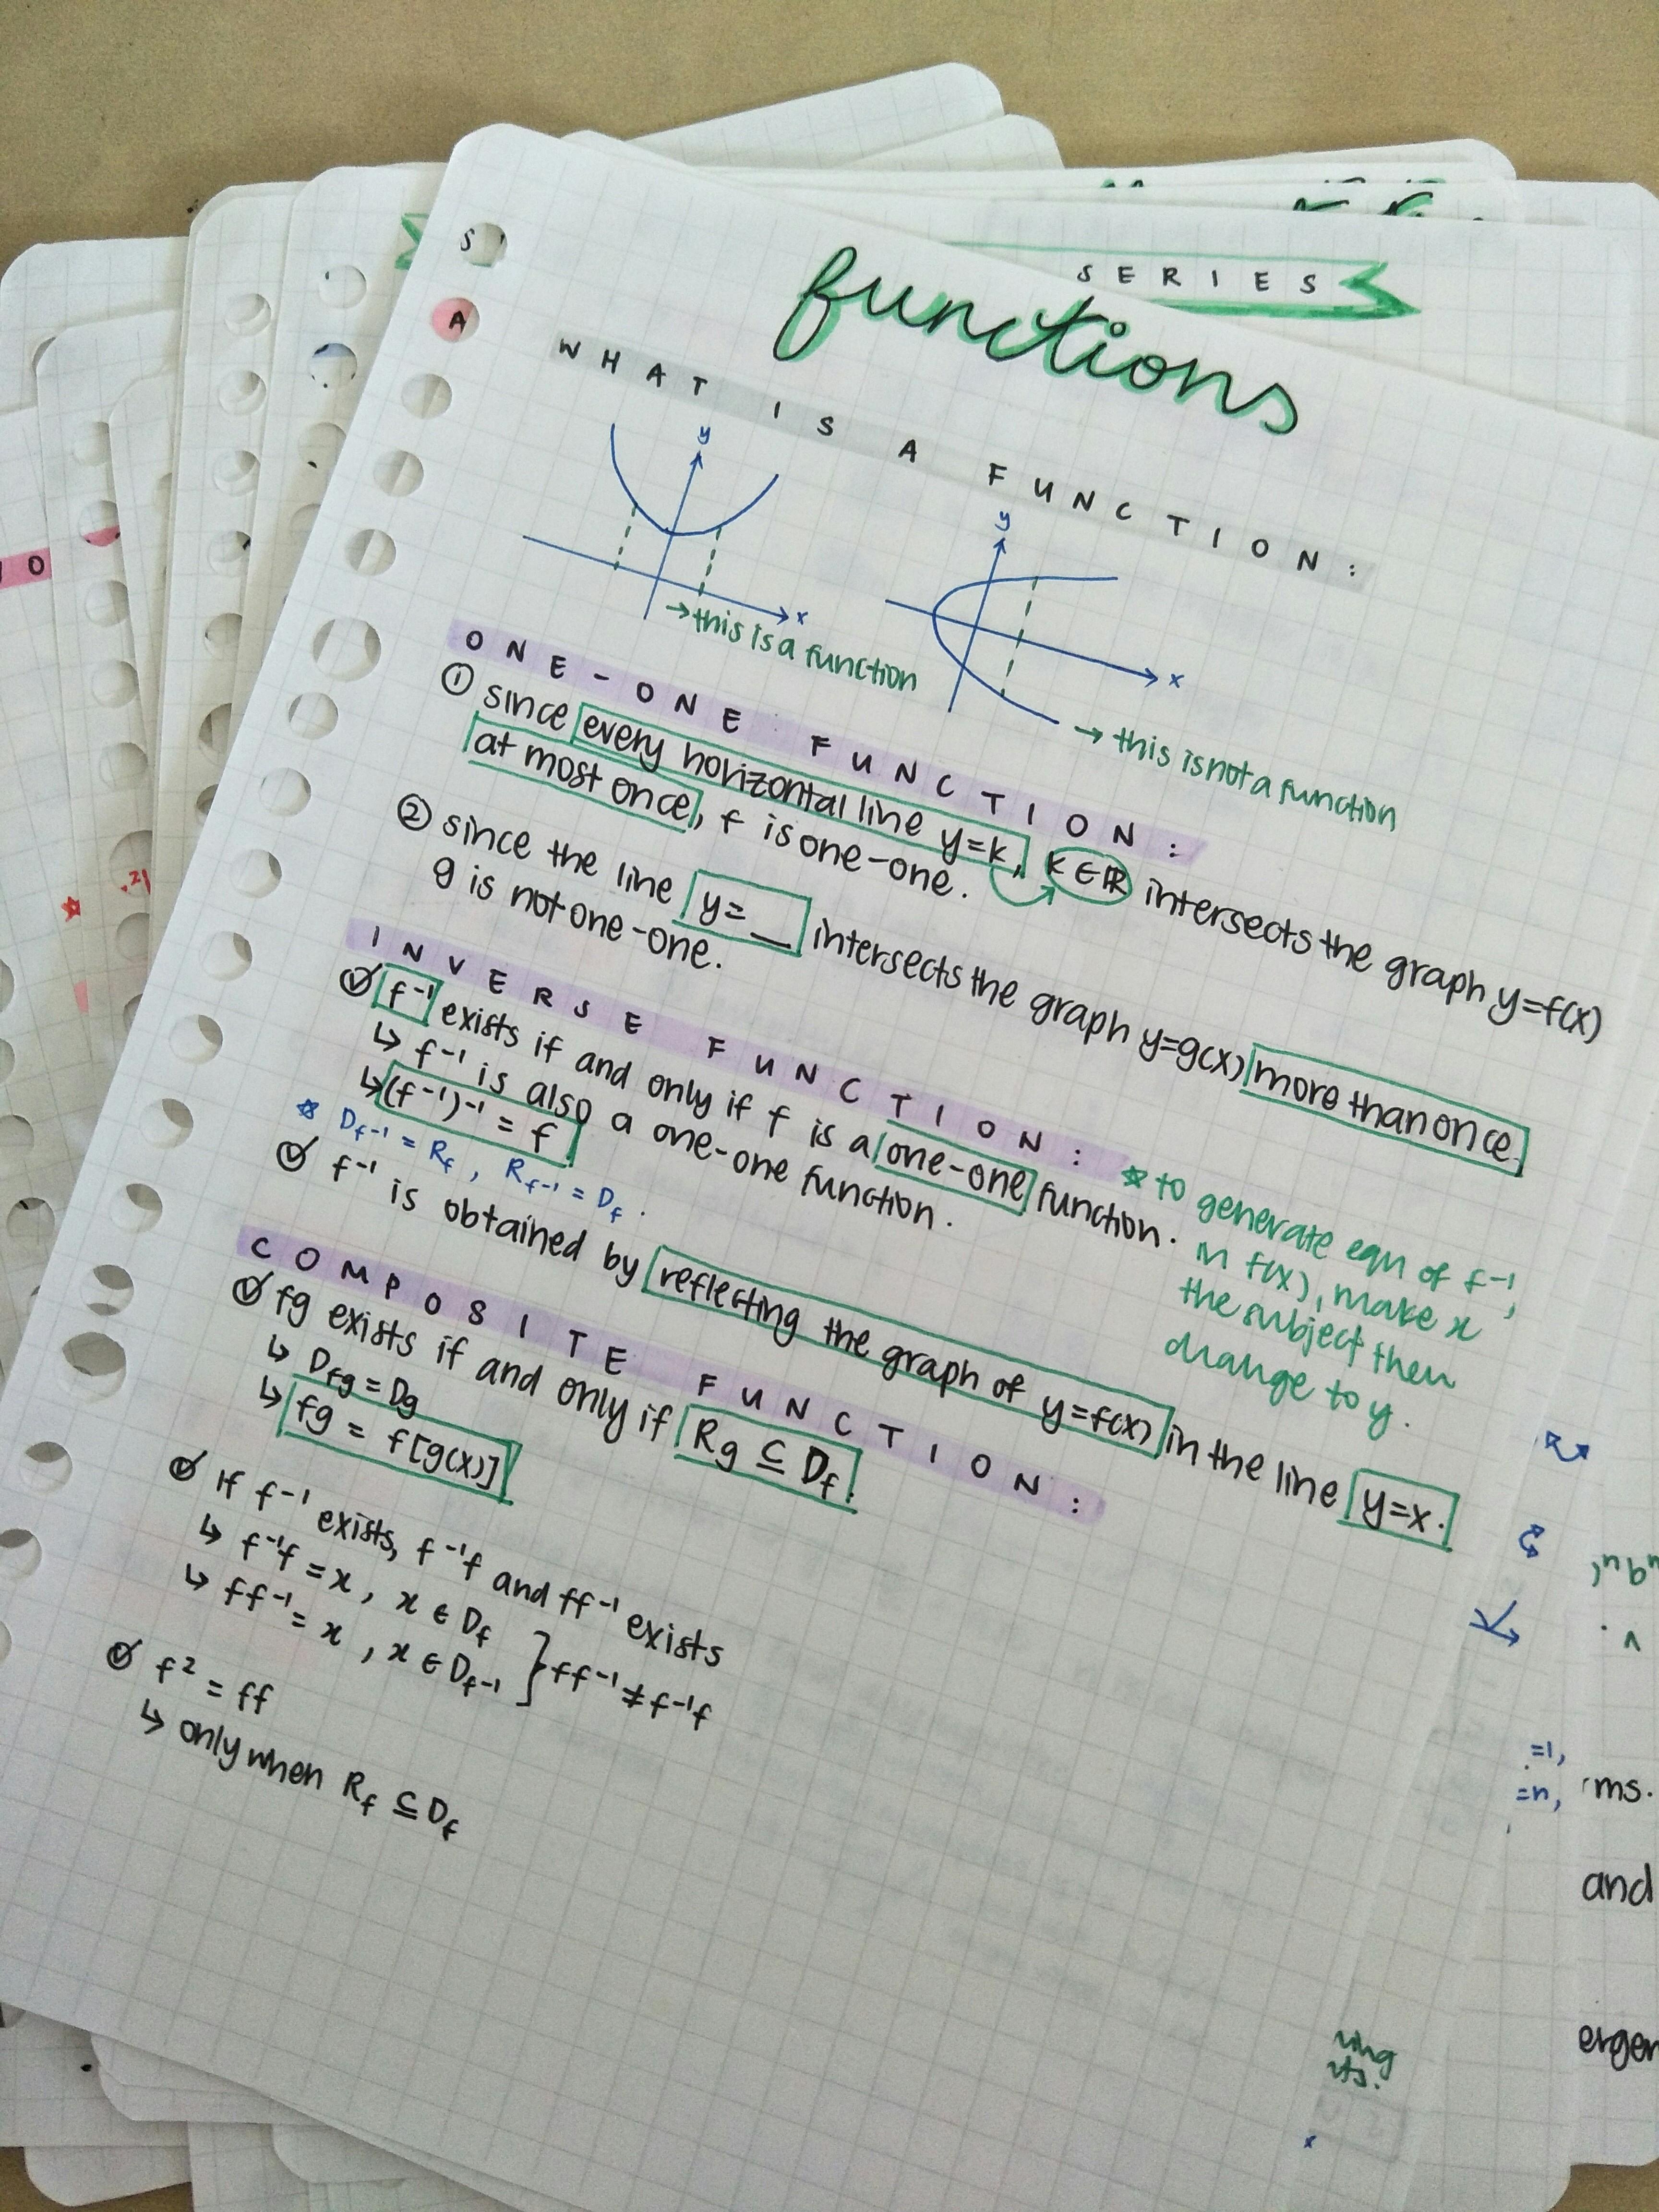 SERIES
functions
S
A
WHAT IS A FUNCTION:
y
x
→ this is a function
y
x
→ this is not a function
ONE-ONE FUNCTION:
① since every horizontal line y=k, k ∈ ℝ intersects the graph y=f(x)
at most once, f is one-one.
② since the line y= __ intersects the graph y=g(x) more than once,
g is not one-one.
INVERSE FUNCTION:
f⁻¹ exists if and only if f is a one-one function.
↳ f⁻¹ is also a one-one function.
↳ (f⁻¹)⁻¹ = f
☆ D_f⁻¹ = R_f , R_f⁻¹ = D_f .
☆ to generate eqn of f⁻¹,
in f(x), make x
the subject then
change to y.
f⁻¹ is obtained by reflecting the graph of y=f(x) in the line y=x.
COMPOSITE FUNCTION:
fg exists if and only if Rg ⊆ D_f.
↳ D_fg = Dg
↳ fg = f[g(x)]
If f⁻¹ exists, f⁻¹f and ff⁻¹ exists
↳ f⁻¹f = x, x ∈ D_f
↳ ff⁻¹ = x , x ∈ D_f⁻¹ } ff⁻¹ ≠ f⁻¹f
f² = ff
↳ only when R_f ⊆ D_f
O
=1,
=n,
ms.
and